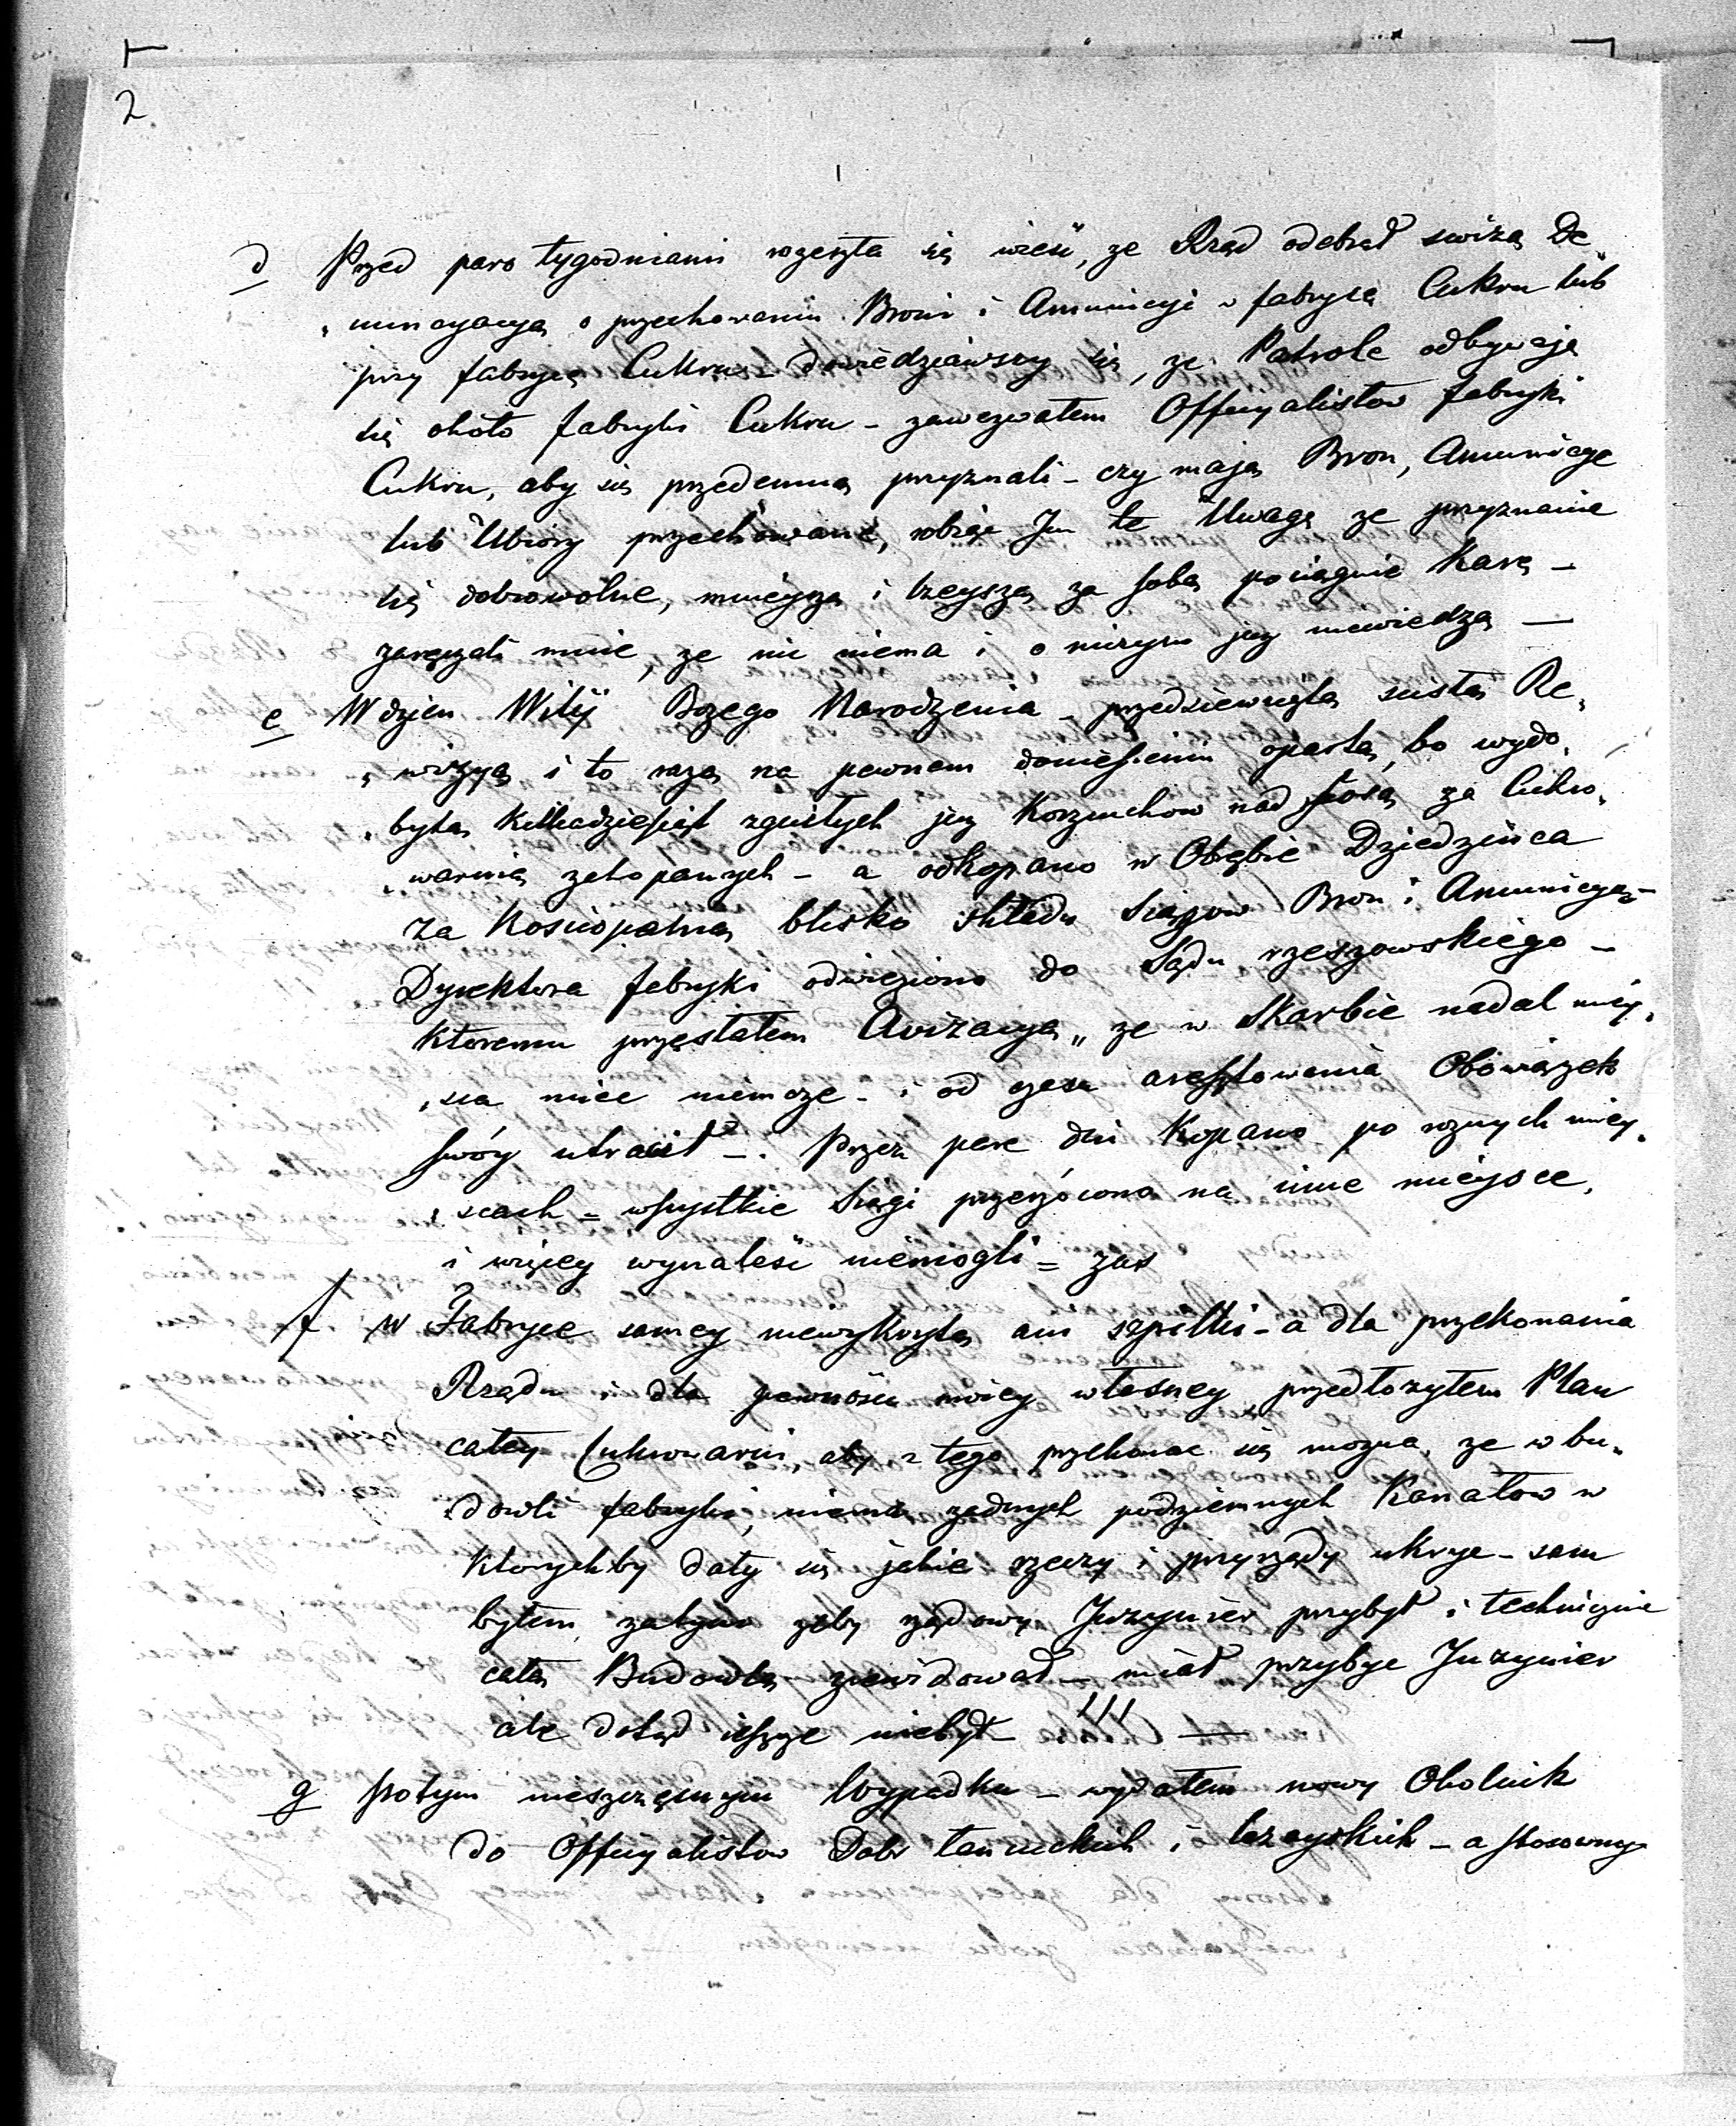 2
d Przed paro tygodniami rozeszła się wieść, ze Rząd odebrał swiżą De„
„nuncyacyą o przechowaniu Broni i Amunicyi w fabryce Cukru lub
przy fabryce Cukru – dowiedziawszy się, ze Patrole odbywają
się około fabryki Cukru – zawezwałem Officyalistow fabryki
Cukru, aby się przedemną przyznali – czy mają Bron, Amunicye
lub Ubiory przechowane, robiąc Im te Uwagę ze przyznanie
się dobrowolne, mnieyszą i lzeyszą za sobą pociągnie Karę –
zaręczali mnie, ze nic niema i o niczym juz niewiedzą —
e W dzien Wilij Bozego Narodzenia – przedsiewzięta scisła Re„
„wizyą i to razą na pewnem doniesieniu oparta, bo wydo„
„bytą Kilkadziesiąt zgniłych juz Kozuchow nad fosą za Cukro„
„warnią zakopanych – a odkopano w Obrębie Dziedzińca
za Kosciopalnią blisko Składu Siągow Bron i Amunicyą –
Dyrektora fabryki odwieziono do Sądu rzeszowskiego –
Ktoremu przesłałem Avizacyą „ ze w Skarbie nadal miey„
„sca mieć niemoze – i od czasu aresztowania Obowiązek
swóy utracił –. Przez parę dni Kopano po roznych miey„
„scach = wszystkie Siągi przerzócono na inne miejsce,
i więcey wynaleść niemogli = zas
f w Fabryce samey niewykryto ani szpilki – a dla przekonania
Rządu i dla pewności moiey własney przedłozyłem Plan
całey Cukrowarni, aby z tego przekonac się mozna, ze w bu„
dowli fabryki, niema zadnych podziemnych Kanałow w
Ktorychby dały się jakie rzeczy i przyrządy ukryc – sam
byłem zatym zeby rządowy Inzynier przybył i technicznie
całą Budowlą zrewidował – miał przybyc Inzynier
ale dotąd ieszcze niebył – !!! —
g po tym nieszczęsnym Wypadku – wydałem nowy Okolnik
do Officyalistow Dobr łancuckich i lezayskich – a stosowny